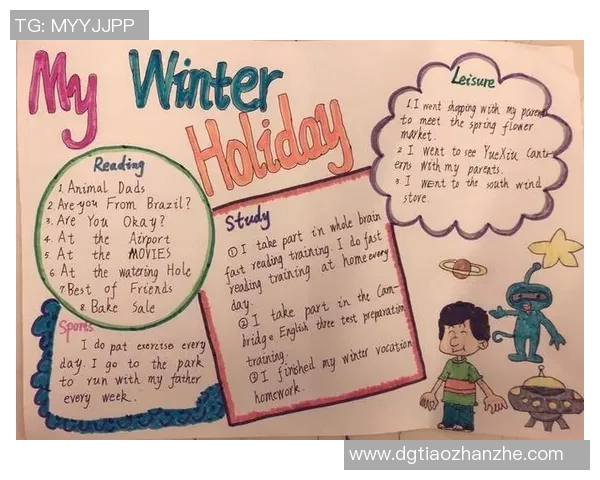 TG: MYYJJPP
My Winter
Holiday
Reading
1. Animal Dads
2. Are you From Brazil?
3. Are You Okay?
4. At the Airport
5. At the MOVIES
6. At the watering Hole
7. Best of Friends
8. Bake Sale
Sports
I do pat exercise every
day. I go to the park
to run with my father
every week.
Study
① I take part in whole brain
fast reading training. I do fast
reading training at home every
day.
② I take part in the Cam-
bridge English three test preparation
training.
③ I finished my winter vocation
homework.
Leisure
1. I went shopping with my parents
to meet the spring flower
market.
2 I went to see YueXiu Cant-
erns with my parents.
3. I went to the south wind
store.
www.dgtiaozhanzhe.com